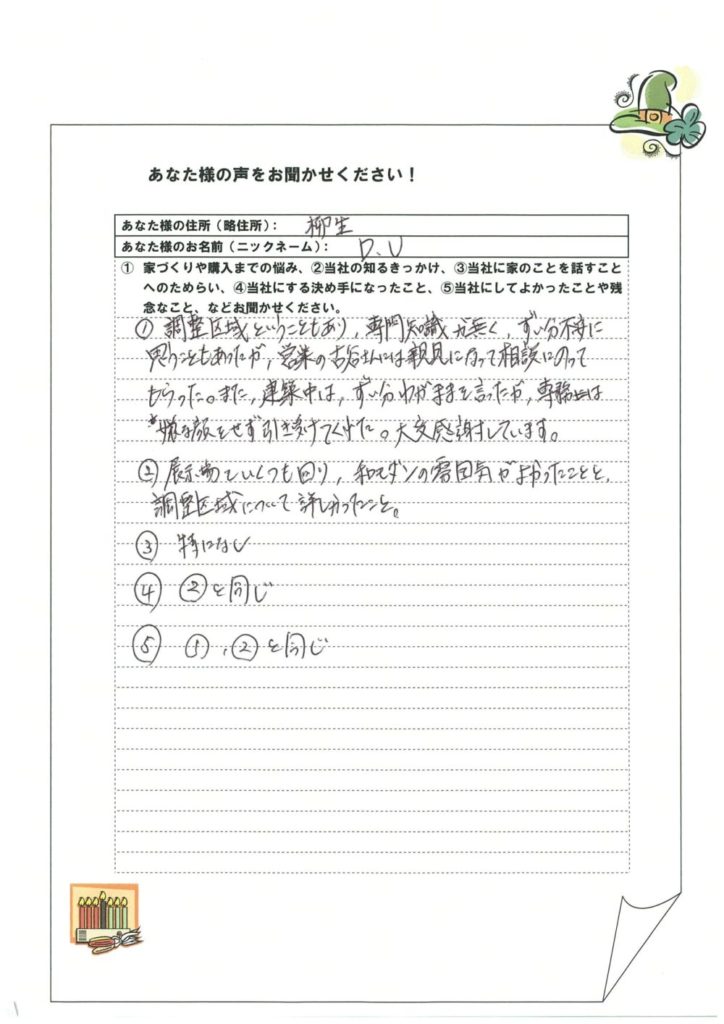 あなた様の声をお聞かせください!
あなた様の住所(略住所): 柳生
あなた様のお名前(ニックネーム): D.U
① 家づくりや購入までの悩み、②当社の知るきっかけ、③当社に家のことを話すこと
へのためらい、④当社にする決め手になったこと、⑤当社にしてよかったことや残
念なこと、などお聞かせください。
① 調整区域ということもあり, 専門知識が無く, ずい分不安に
思うこともあったが, 営業の古谷さんには親見になって相談にのって
もらった。また, 建築中は, ずい分わがままを言ったが, 専務は
嫌な顔をせず引き受けてくれた。大変感謝しています。
② 展示場をいくつも回り, 和モダンの雰囲気がよかったことと,
調整区域について詳しかったこと。
③ 特になし
④ ②と同じ
⑤ ①,②と同じ